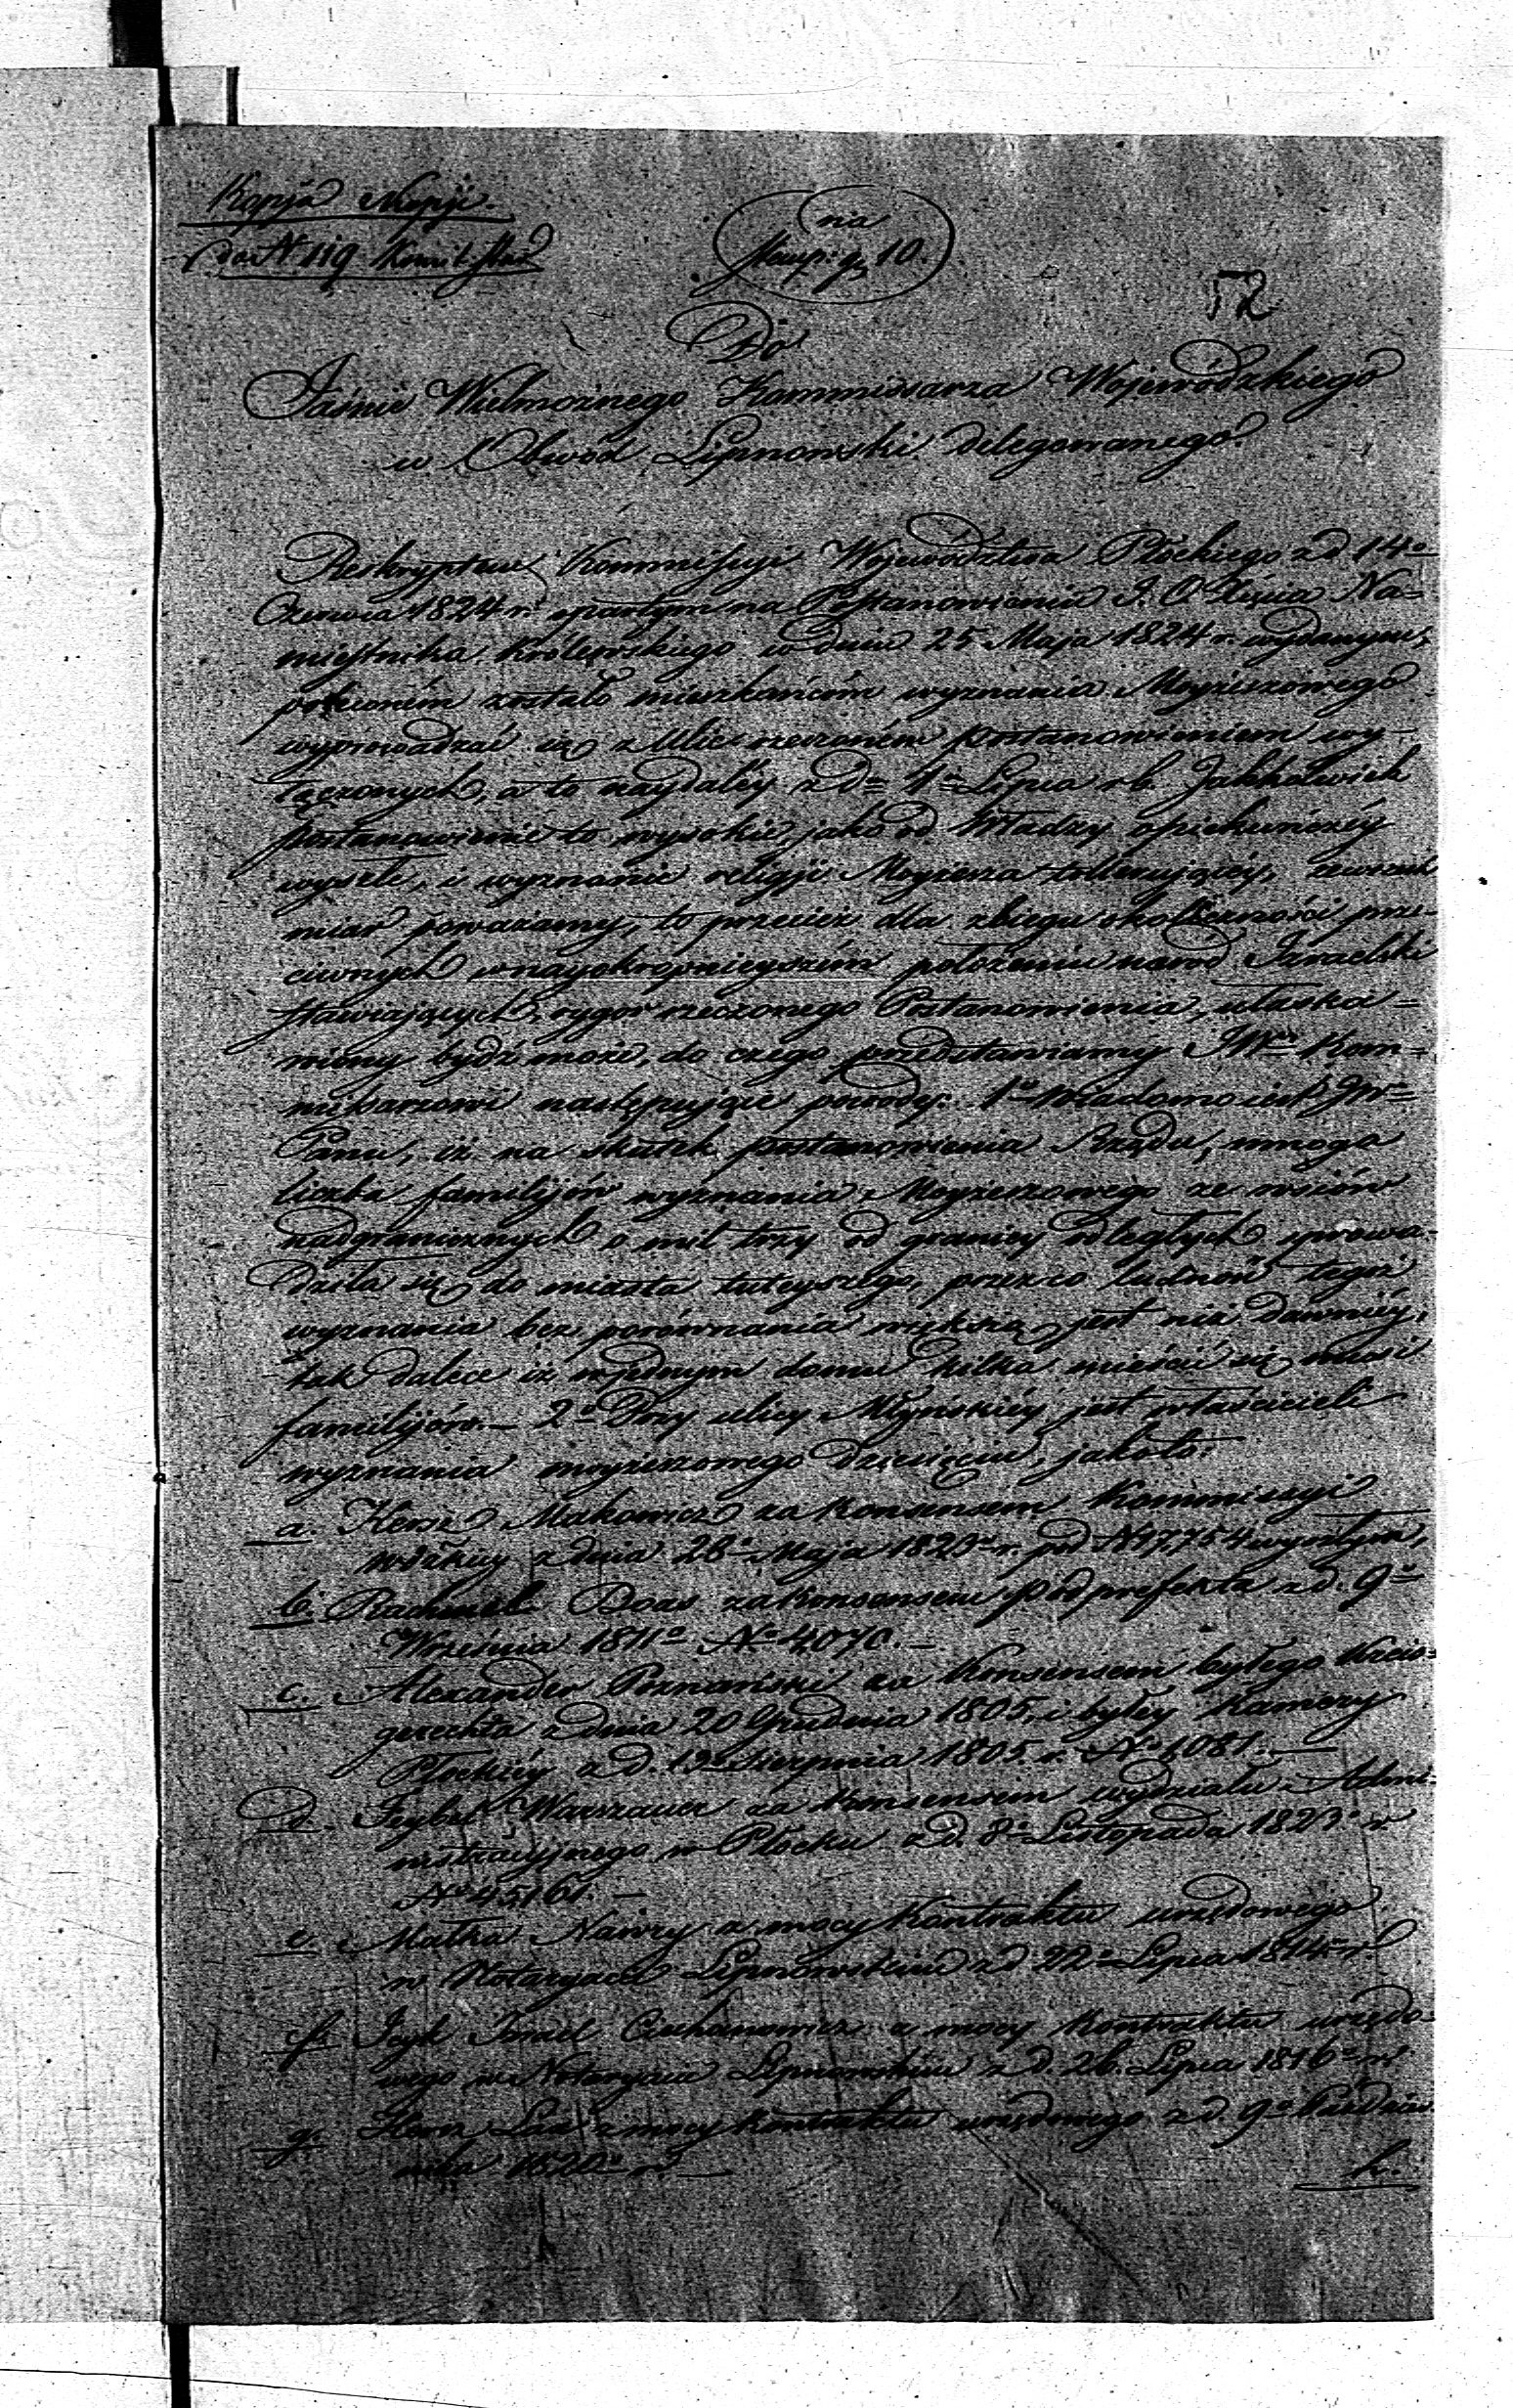 Kopja z Kopji.
do N 119 Kommit. Star
na
stemp: gr 10.
52
Do
Jaśnie Wielmożnego Kommissarza Wojewódzkiego
w Obwód Lipnowski delegowanego.
Reskryptem Kommissyi Województwa Płockiego z d. 14º
Czerwca 1824 r. opartym na Postanowieniu J. O. Xięcia Na=
miestnika Królewskiego w dniu 25 Maja 1824 r. wydanym,
poleconém zostało mieszkańcóm wyznania Moyżeszowego
wyprowadzać się z Ulic rzeczoném postanowieniem wy-
łączonych, a to naydaléy z dº 1º Lipca r. b. Jakkolwiek
postanowienie to wysokie, jako od Władzy opiekuńczéy
wyszłe, i wyznanie religji Moyżesza tollerującéy, zewszech
miar poważamy, to przecież dla zbiegu okoliczności prze-
ciwnych w nayokropnieyszém położeniu naród Izraelski
stawiających, rygor rzeczonego Postanowienia, ułaska=
wiony bydź może, do czego przedstawiamy JWº Kom=
missarzowi następujące powody: 1º Wiadomo iest JWº
Panu, iż na skutek postanowienia Rządu, mnoga
liczba familijów wyznania Moyżeszowego ze wsiów
nadgranicznych o mil trzy od granicy odległych sprowa-
dziła się do miasta tuteyszego, przez co ludność tegoż
wyznania bez porównania większą jest niż dawniéy,
tak dalece iż w jednym domu kilka mieścić się musi
familijów. — 2º Przy ulicy Młyńskiéy jest właścicieli
wyznania moyżeszowego dziesięciu, jakoto:
a. Hersz Makowicz za konsensem Kommissyi
Wdzkiéy z dnia 28º Maja 1823º r. pod N 17,754 wyszłym,
b. Rachmiel Boas za konsensem podprefekta z d. 9º
Września 1811º Nº 4070. —
c. Alexander Poznański za Konsensem byłego Kreis=
gerechta z dnia 20 Grudnia 1805. i byłey Kamery
Płockiéy z d. 19º Sierpnia 1805. r. Nº 1081. —
d. Feybel Warszauer za Konsensem wydziału Admi-
nistracyjnego w Płocku z d. 8º Listopada 1823º r
Nº 45161. —
e. Małka Nawry z mocy Kontraktu urzędowego
w Notaryacie Lipnowskim z d. 22º Lipca 1814º r.
f. Icyk Israel Ciechanowicz z mocy Kontraktu urzędo=
wego w Notaryacie Lipnowskim z d. 26. Lipca 1816º r.
g. Hersz Las z mocy Kontraktu urzędowego z d. 9º Paździer
nika 1820º r. —
h.